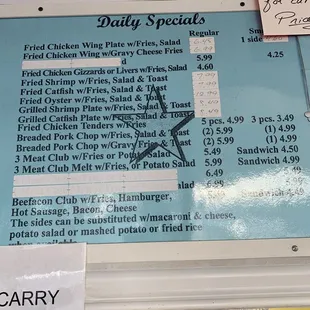 for car
Pric
Daily Specials
Regular Sm
Fried Chicken Wing Plate w/Fries, Salad 1 side
Fried Chicken Wing w/Gravy Cheese Fries 4.25
d 5.99
Fried Chicken Gizzards or Livers w/Fries, Salad 4.60
Fried Shrimp w/Fries, Salad & Toast
Fried Catfish w/Fries, Salad & Toast
Fried Oyster w/Fries, Salad & Toast
Grilled Shrimp Plate w/Fries, Salad & Toast
Grilled Catfish Plate w/Fries, Salad & Toast
Fried Chicken Tenders w/Fries 5 pcs. 4.99 3 pcs. 3.49
Breaded Pork Chop w/Fries, Salad & Toast (2) 5.99 (1) 4.99
Breaded Pork Chop w/Gravy Fries & Toast (2) 5.99 (1) 4.99
3 Meat Club w/Fries or Potato Salad 5.49 Sandwich 4.50
3 Meat Club Melt w/Fries, or Potato Salad 5.99 Sandwich 4.99
6.49
5.99
Beefacon Club w/Fries, Hamburger, 5.99 Sandwich 4.99
Hot Sausage, Bacon, Cheese
The sides can be substituted w/macaroni & cheese,
potato salad or mashed potato or fried rice
when available
CARRY